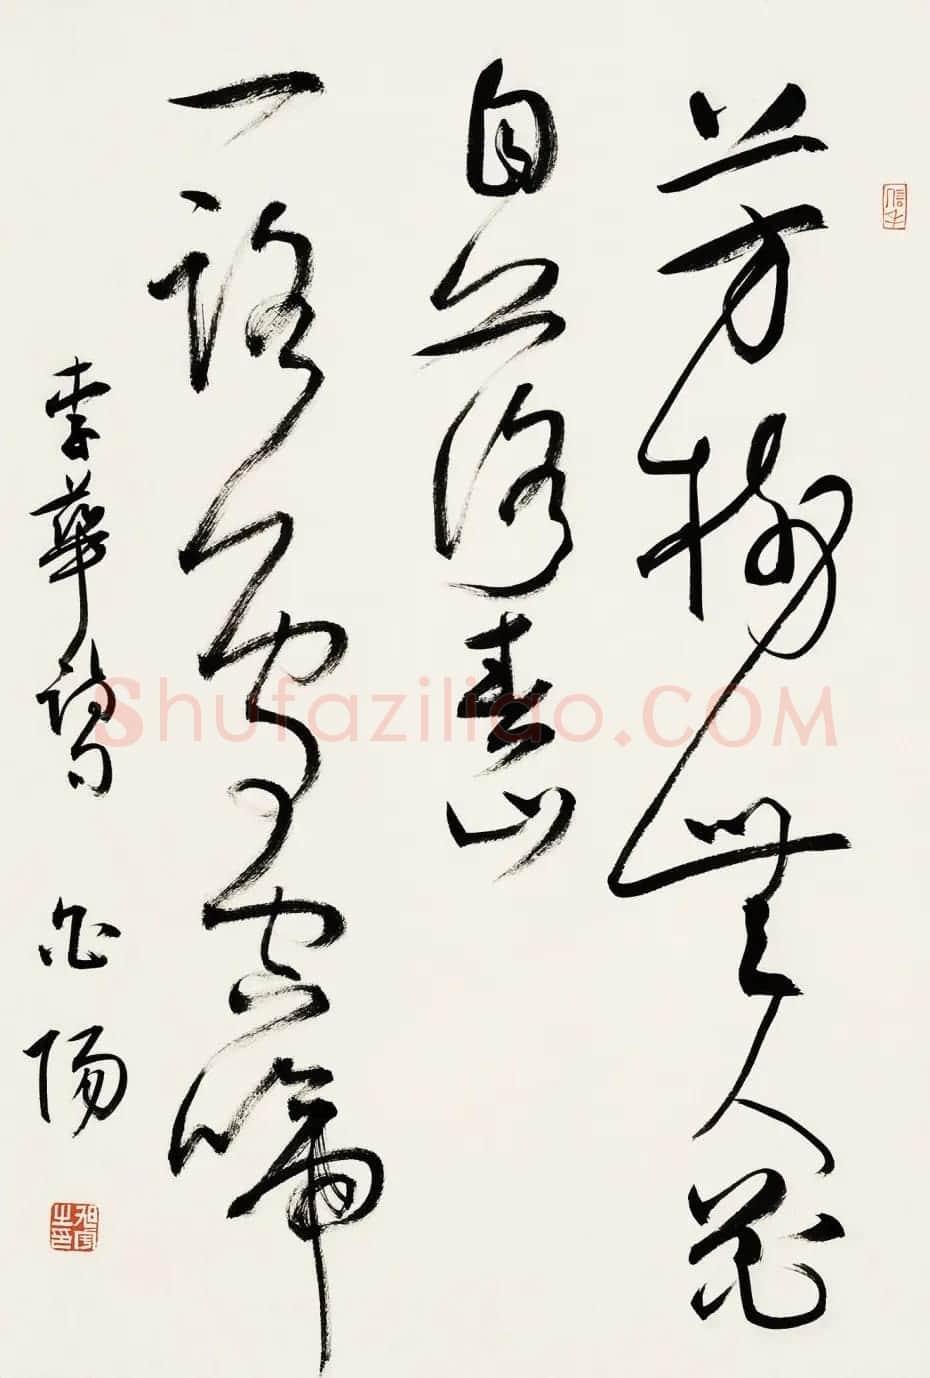 芳樹無人花
自落春山
一路鳥空啼
李華詩
旭宇之印
Shufaziliao.COM